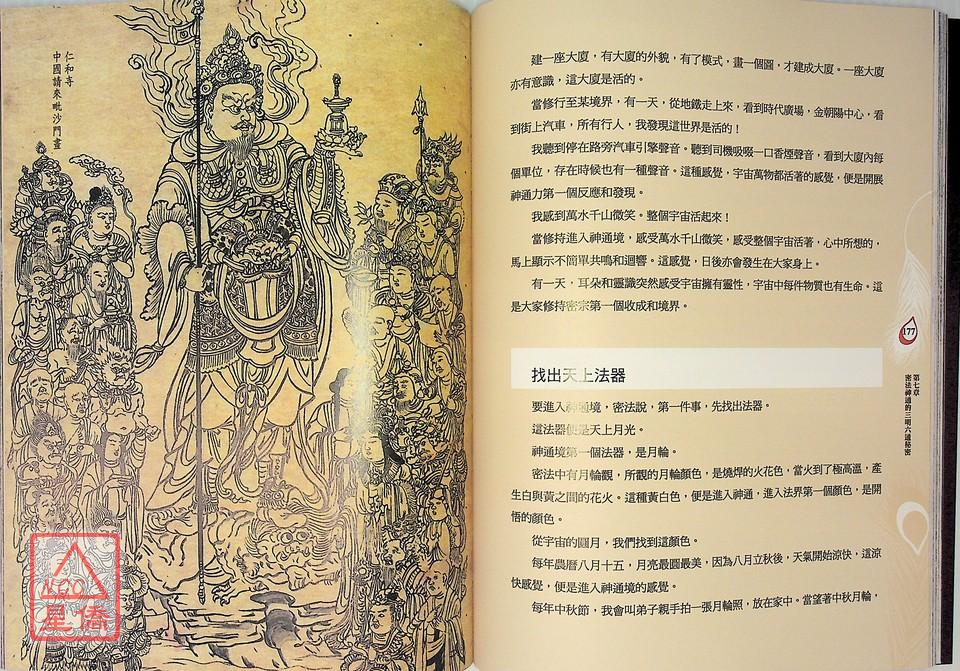 仁和寺
中國請來毗沙門畫
NCC
星僑
建一座大廈，有大廈的外貌，有了模式，畫一個圖，才建成大廈。一座大廈
亦有意識，這大廈是活的。
當修行至某境界，有一天，從地鐵走上來，看到時代廣場，金朝陽中心，看
到街上汽車，所有行人，我發現這世界是活的！
我聽到停在路旁汽車引擎聲音。聽到司機吸啜一口香煙聲音，看到大廈內每
個單位，存在時候也有一種聲音。這種感覺，宇宙萬物都活著的感覺，便是開展
神通力第一個反應和發現。
我感到萬水千山微笑。整個宇宙活起來！
當修持進入神通境，感受萬水千山微笑，感受整個宇宙活著，心中所想的，
馬上顯示不簡單共鳴和迴響。這感覺，日後亦會發生在大家身上。
有一天，耳朵和靈識突然感受宇宙擁有靈性，宇宙中每件物質也有生命。這
是大家修持密宗第一個收成和境界。
找出天上法器
要進入神通境，密法說，第一件事，先找出法器。
這法器便是天上月光。
神通境第一個法器，是月輪。
密法中有月輪觀，所觀的月輪顏色，是燒焊的火花色，當火到了極高溫，產
生白與黃之間的花火。這種黃白色，便是進入神通，進入法界第一個顏色，是開
悟的顏色。
從宇宙的圓月，我們找到這顏色。
每年農曆八月十五，月亮最圓最美，因為八月立秋後，天氣開始涼快，這涼
快感覺，便是進入神通境的感覺。
每年中秋節，我會叫弟子親手拍一張月輪照，放在家中。當望著中秋月輪，
177
第七章
密法神通的三明六通秘密